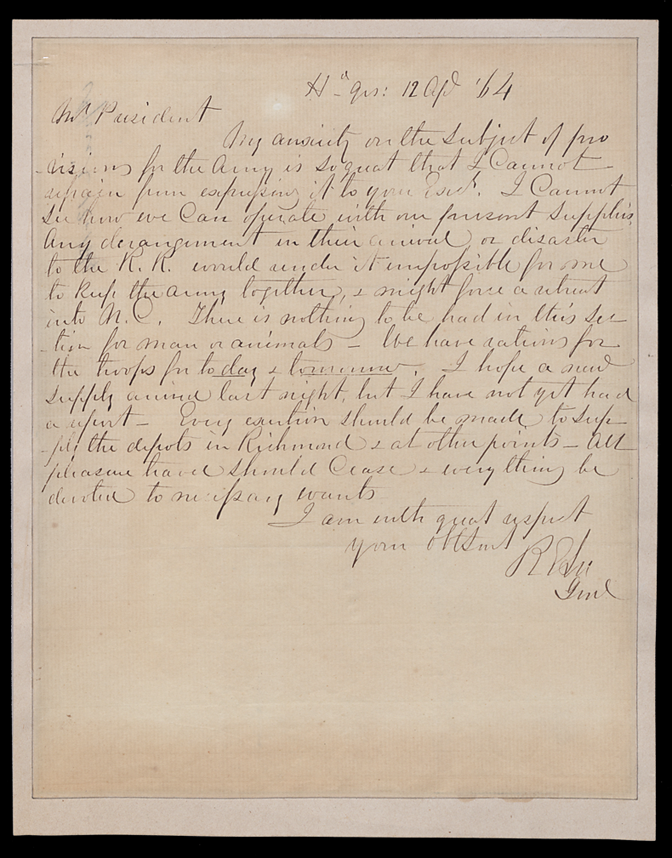 Hd qrs: 12 Apl '64
Mr President
My anxiety on the subject of pro
visions for the Army is so great that I Cannot
refrain from expressing it to your Excy. I Cannot
see how we Can operate with our present supplies.
Any derangement in their arrival or disaster
to the R. R. would render it impossible for me
to keep the army together, & might force a retreat
into N. C. There is nothing to be had in this sec-
-tion for man or animals - We have rations for
the troops for today & tomorrow. I hope a new
supply arrived last night, but I have not yet had
a report - Every exertion should be made to sup-
-ply the depots in Richmond & at other points - All
pleasure travel should Cease & everything be
devoted to necessary wants
I am with great respect
your obt Servt
R E Lee
Genl